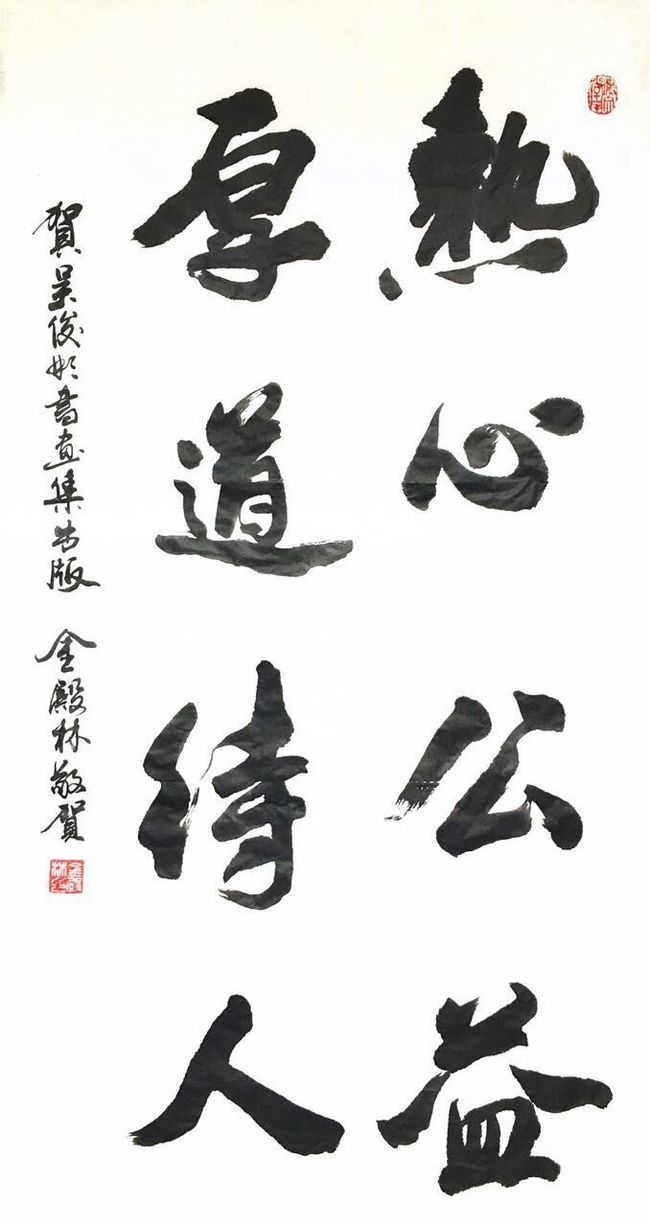 熱心公益
厚道待人
賀吴俊彬書画集出版 金殿林敬賀